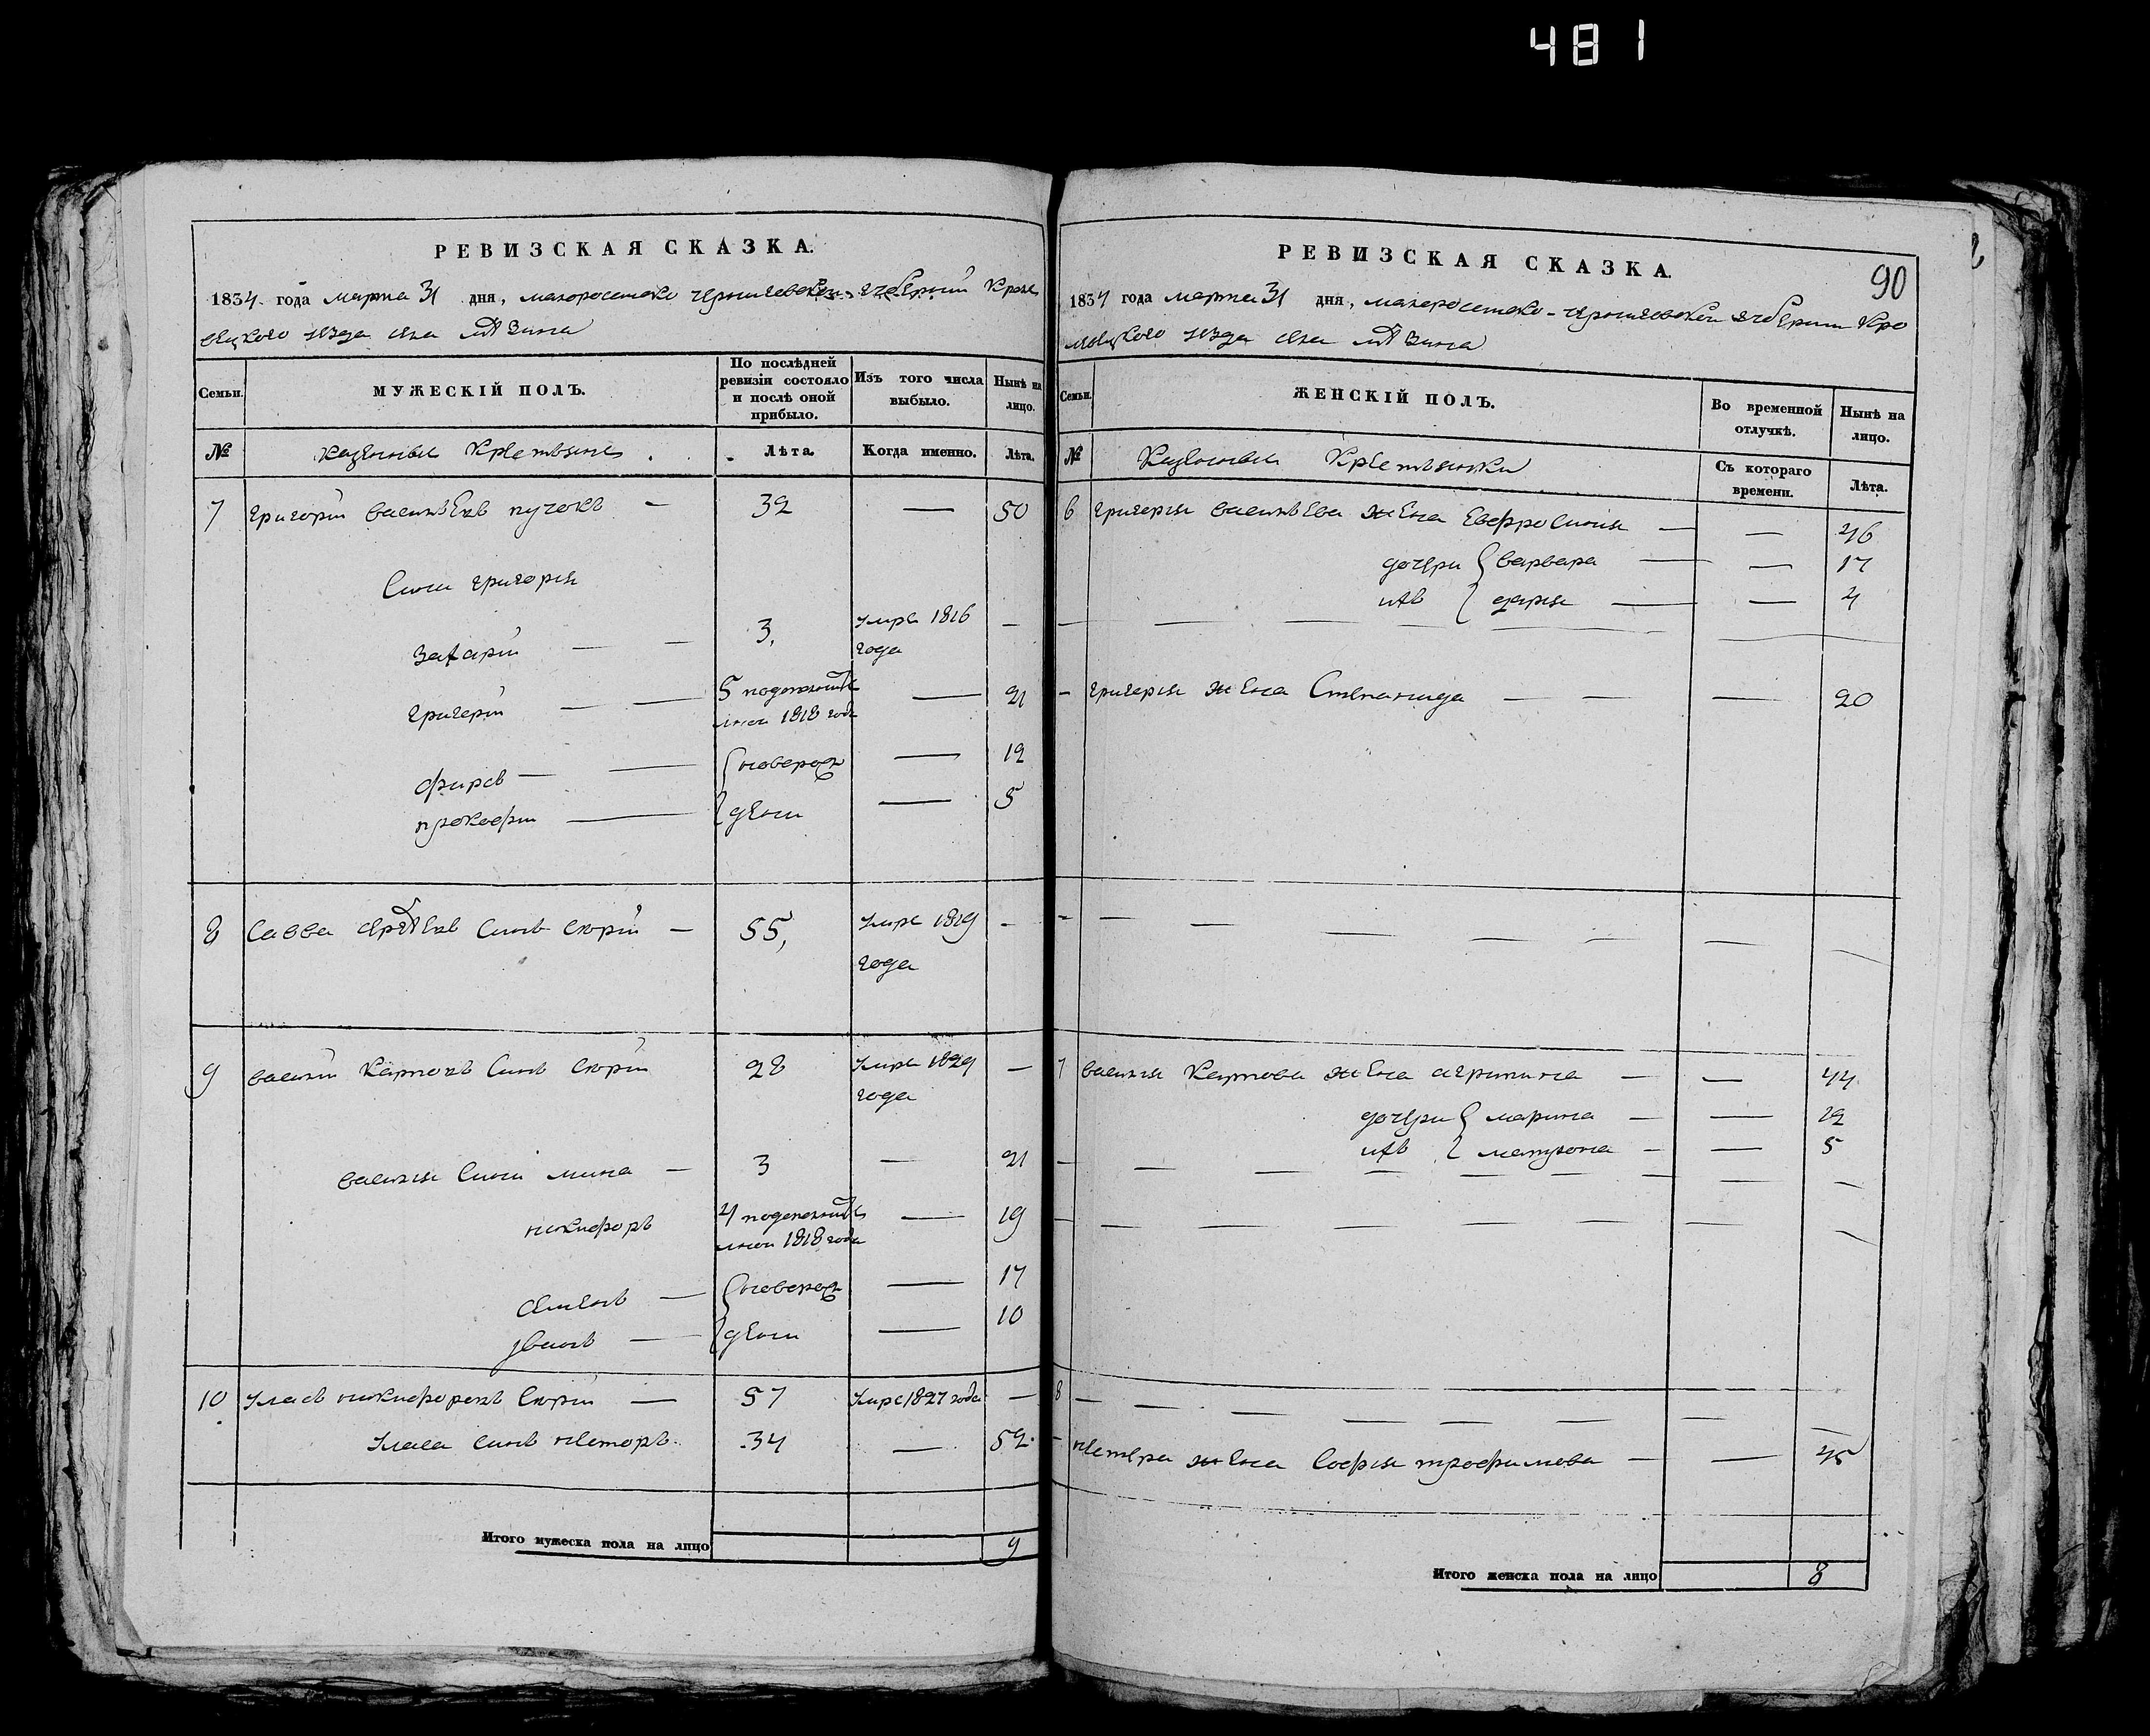 481
РЕВИЗСКАЯ СКАЗКА.
1834 года марта 31 дня, малоросиско черниговской губернии Кроле
вецкого уезда села мезина
Семьи.
МУЖЕСКІЙ ПОЛЪ.
По послѣдней ревизіи состояло и послѣ оной прибыло.
Изъ того числа выбыло.
Нынѣ на лицо.
№
казенные крестьяне
Лѣта.
Когда именно.
Лѣта.
7 григорий васильевъ пучокъ — 32 — 50
сыны григория
захарий — — 3, умре 1816 года —
григорий — — 5 подополнитель ной 1818 года — 21
фирсъ — — новорож — 12
прокофий — дены — 5
8 Савва сынъ скорый — 55, умре 1819 года -
9 василий карповъ сынъ скорый 28 умре 1829 года —
василия сыны мина — 3 — 21
никифоръ 4 подополнитель ной 1818 года — 19
семенъ — новорож — 17
дены — 10
10 уласъ никифоровъ скорый — 57 умре 1827 года —
уласа сынъ несторъ 34 — 52
Итого мужеска пола на лицо 9
90
РЕВИЗСКАЯ СКАЗКА.
1834 года марта 31 дня, малоросиско-черниговской губернии Кро
левецкого уезда села мезина
Семьи.
ЖЕНСКІЙ ПОЛЪ.
Во временной отлучкѣ.
Нынѣ на лицо.
№
Казенные крестьянки
Съ котораго времени.
Лѣта.
6 григория васильева жена Евфросиния — — 46
дочери варвара — — 17
ихъ дария — — 4
- григория жена Степанида — — — 20
7 василия Карпова жена агрипина — — 44
дочери марина — — 12
ихъ матрона — — 5
8
- нестера жена софия трофимова — — 45
Итого женска пола на лицо 8